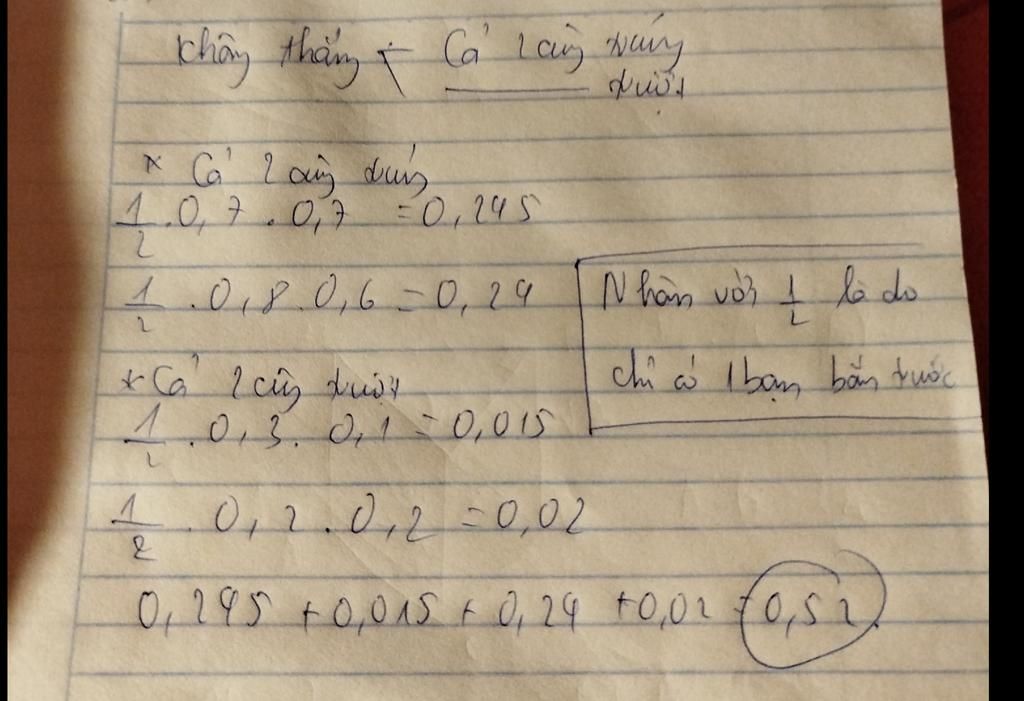 Không thắng
Cả 2 cùng trúng
trượt
* Cả 2 cùng trúng
1/2 . 0,7 . 0,7 = 0,245
1/2 . 0,8 . 0,6 = 0,24
Nhân với 1/2 là do
chỉ có 1 bạn bắn trước
* Cả 2 cùng trượt
1/2 . 0,3 . 0,1 = 0,015
1/2 . 0,2 . 0,2 = 0,02
0,245 + 0,015 + 0,24 + 0,02 = 0,52